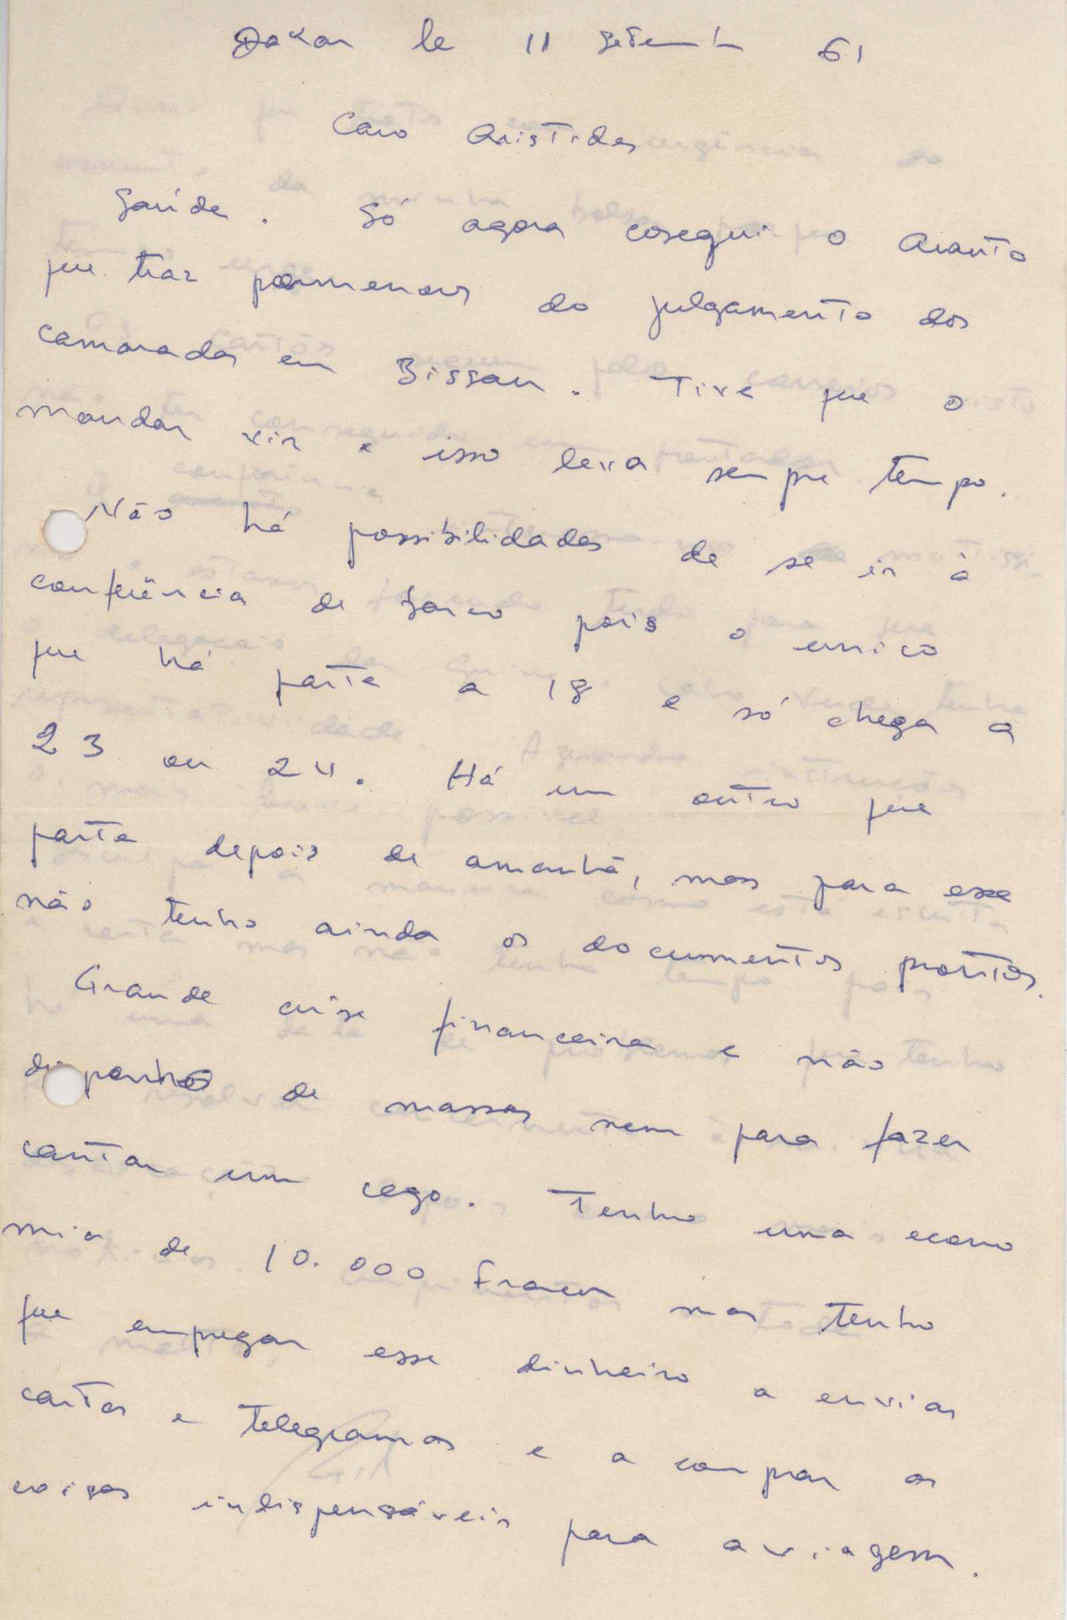 Dakar le 11 Setemb 61
Caro Aristides
Saúde. Só agora cosegui o Arauto
que traz pormenores do julgamento dos
camaradas em Bissau. Tive que o
mandar vir e isso leva sempre tempo.
Não há possibilidades de se ir à
conferência de barco pois o unico
que há parte a 18 e só chega a
23 ou 24. Há um outro que
parte depois de amanhã, mas para esse
não tenho ainda os documentos prontos.
Grande crise financeira e não
disponho de massas nem para fazer
cantar um cego. Tenho uma econo
mia de 10.000 francos mas tenho
que empregar esse dinheiro a enviar
cartas e telegramas e a comprar as
coisas indispensáveis para a viagem.